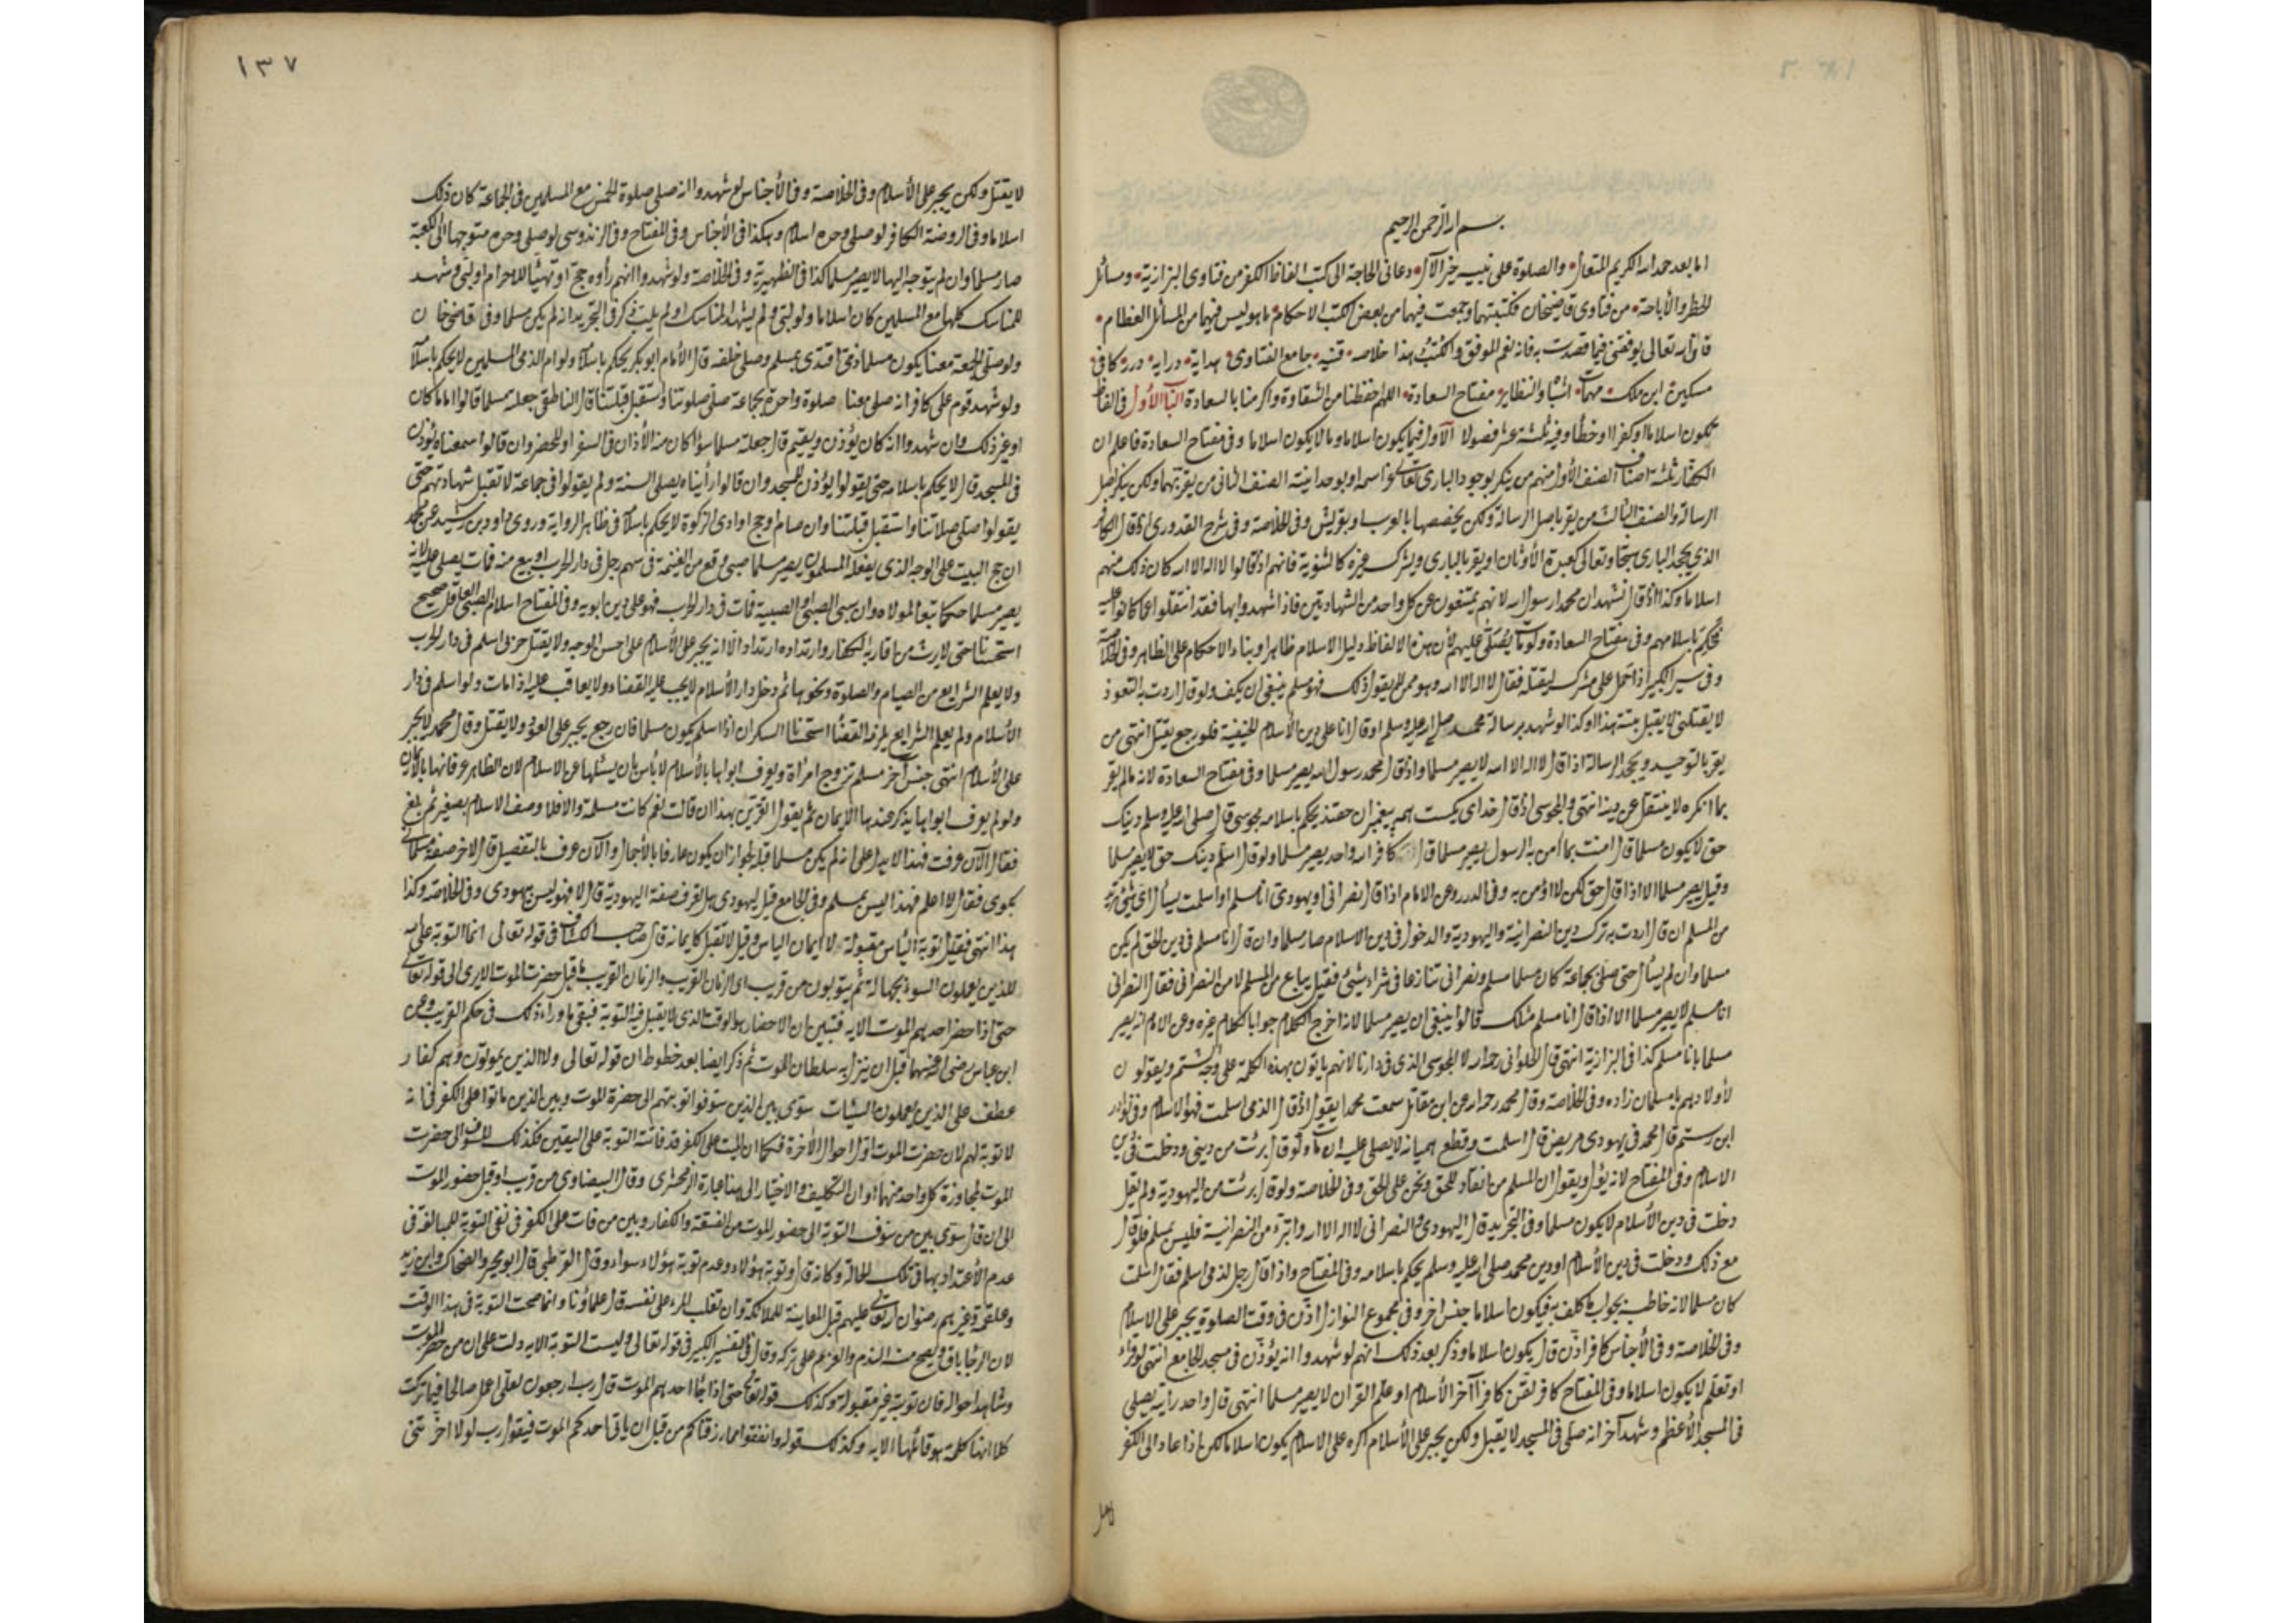 بسم الله الرحمن الرحيم
اما بعد حمد الله الكريم المتعال والصلوة على نبيه خير الآل دعانى الحاجة الى كتب الفاظ الكفر من فتاوى البزازية ومسائل
الحظر والأباحة من فتاوى قاضيخان فكتبتهما وجمعت فيهما من بعض الكتب الاحكام ما هو ليس فيهما من المسائل العظام
فان الله تعالى يوفقنى فيما قصدت به فانه نعم الموفق والكتب هذا خلاصه قنيه جامع الفتاوى هدايه درايه درر كافى
مسكين ابن ملك مهمات اشباه والنظاير مفتاح السعادة اللهم احفظنا من الشقاوة واكرمنا بالسعادة الباب الأول فى الفاظ
تكون اسلاما او كفرا او خطأ وفيه ثلثة عشر فصولا الأول فيما يكون اسلاما وما لا يكون اسلاما وفى مفتاح السعادة فاعلم ان
الكفار ثلثة اصناف الصنف الأول منهم من ينكر بوجود البارى تعالى اسمه او بوحدانيته الصنف الثانى من يقر بهما ولكن ينكر اصل
الرسالة والصنف الثالث من يقر باصل الرسالة ولكن يخصصها بالعرب او بقريش وفى الخلاصة وفى شرح القدورى اذا قال الكافر
الذى يجحد البارى سبحانه وتعالى كعبدة الأوثان او يقر بالبارى ويشرك غيره كالثنوية فانهم اذا قالوا لا اله الا الله كان ذلك منهم
اسلاما وكذا اذا قال نشهد ان محمدا رسول الله لانهم يمتنعون عن كل واحد من الشهادتين فاذا شهدوا بها فقد انتقلوا عما كانوا عليه
فحكم باسلامهم وفى مفتاح السعادة ولو مات يصلى عليهم لان هذه الالفاظ دليل الاسلام ظاهرا وبناء الاحكام على الظاهر وفى الخلاصة
وفى سير الكبير اذا حمل على مشرك ليقتله فقال لا اله الا الله وهو ممن لا يقول ذلك فهو مسلم ينبغى ان يكف ولو قال اردت به التعوذ
لا يقبل منه هذا وكذا لو شهد برسالة محمد صلى الله عليه وسلم او قال انا على دين الأسلام الحنيفية فلو رجع يقتل انتهى من
يقر بالتوحيد ويجحد الرسالة اذا قال لا اله الا الله لا يصير مسلما واذا قال محمد رسول الله يصير مسلما وفى مفتاح السعادة لانه ما لم يقر
بما انكره لا ينتقل عن دينه انتهى والمجوسى اذا قال خداى يكيست همه پيغمبران حقند يحكم باسلامه مجوسى قال صلى الله عليه وسلم دينك
حق لا يكون مسلما قال امنت بما آمن به الرسول يصير مسلما قال كافر الله واحد يصير مسلما ولو قال اسلم دينك حق لا يصير مسلما
وقيل يصير مسلما الا اذا قال حق لكن لا اؤمن به وفى الدرر وعن الامام اذا قال نصرانى او يهودى انا مسلم او اسلمت يسأل اى شئ
من المسلم ان قال اردت به ترك دين النصرانية واليهودية والدخول فى دين الاسلام صار مسلما وان قال انا مسلم فى دين الحق لم يكن
مسلما وان لم يسأل حتى صلى بجماعة كان مسلما مسلم ونصرانى تنازعا فى شراء شئ فقيل يباع من المسلم لا من النصرانى فقال النصرانى
انا مسلم لا يصير مسلما الا اذا قال انا مسلم مثلك قالوا ينبغى ان يصير مسلما لانه اخرج الكلام جوابا لكلام غيره وعن الامام انه يصير
مسلما بانا مسلم كذا فى البزازية انتهى قال الحلوانى رحمه الله لا المجوسى الذى فى دارنا لانهم يأتون بهذه الكلمة على وجه الشتم ويقولون
لأولادهم يا مسلمان زاده وفى الخلاصة وقال محمد رحمه الله عن ابن مقاتل سمعت محمدا يقول اذا قال الذمى اسلمت فهو الاسلام وفى نوادر
ابن رستم قال محمد فى يهودى مريض قال اسلمت وقطع هميانه لا يصلى عليه ان مات ولو قال برئت من دينى ودخلت فى دين
الاسلام وفى المفتاح لانه يؤل ويقول ان المسلم من انقاد للحق ونحن على الحق وفى الخلاصة ولو قال برئت من اليهودية ولم يقل
دخلت فى دين الأسلام لا يكون مسلما وفى التجريد قال اليهودى والنصرانى لا اله الا الله واتبرء من النصرانية فليس بمسلم فلو قال
مع ذلك ودخلت فى دين الأسلام او دين محمد صلى الله عليه وسلم يحكم باسلامه وفى المفتاح واذا قال رجل لذمى اسلم فقال اسلمت
كان مسلما لانه خاطبه بجواب ما كلف به فيكون اسلاما جنس اخر وفى مجموع النوازل اذن فى وقت الصلوة يجبر على الاسلام
وفى الخلاصة وفى الأجناس كافر اذن قال يكون اسلاما وذكر بعد ذلك انهم لو شهدوا انه يؤذن فى مسجد الجامع انتهى لو قرأ
او تعلم لا يكون اسلاما وفى المفتاح كافر لقن كافرا آخر الأسلام او علم القران لا يصير مسلما انتهى قال واحد رأيته يصلى
فى المسجد الأعظم وشهد آخر انه صلى فى المسجد لا يقبل ولكن يجبر على الأسلام اكره على الاسلام يكون اسلاما لكن اذا عاد الى الكفر
١٣٧
لا يقتل ولكن يجبر على الأسلام وفى الخلاصة وفى الأجناس لو شهدوا انه صلى صلوة الخمس مع المسلمين فى الجماعة كان ذلك
اسلاما وفى الروضة الكافر لو صلى وحده اسلام وهكذا فى الأجناس وفى المفتاح وفى الزندوسى لو صلى وحده متوجها الى الكعبة
صار مسلما وان لم يتوجه اليها لا يصير مسلما كذا فى الظهيرية وفى الخلاصة ولو شهدوا انهم رأوه حج او تهيئا للاحرام او لبى وشهد
المناسك كلها مع المسلمين كان اسلاما ولو لبى ولم يشهد المناسك او لم يلب ذكر فى التجريد انه لم يكن مسلما وفى قاضى خان
ولو صلى الجمعة معنا يكون مسلما ذمى اقتدى بمسلم وصلى خلفه قال الأمام ابو بكر يحكم باسلامه ولو ام الذمى المسلمين لا يحكم باسلامه
ولو شهد قوم على كافر انه صلى معنا صلوة واحدة بجماعة صلى صلوتنا واستقبل قبلتنا قال الناطفى جعله مسلما قالوا اماما كان
او غير ذلك وان شهدوا انه كان يؤذن ويقيم قال جعلته مسلما سواء كان منه الأذان فى السفر او الحضر وان قالوا سمعناه يؤذن
فى المسجد قال لا يحكم باسلامه حتى يقولوا يؤذن للمسجد وان قالوا رأيناه يصلى السنة ولم يقولوا فى جماعة لا تقبل شهادتهم حتى
يقولوا صلى صلاتنا واستقبل قبلتنا وان صام او حج او ادى الزكوة لا يحكم باسلامه فى ظاهر الرواية وروى داود بن رشيد عن محمد
ان حج البيت على الوجه الذى يفعله المسلمون يصير مسلما صبى وقع من الغنيمة فى سهم رجل فى دار الحرب او بيع منه فمات يصلى عليه لانه
يصير مسلما حكما تبعا لمولاه وان سبى الصبى والصبية فمات فى دار الحرب فهو على دين ابويه وفى المفتاح اسلام الصبى العاقل صحيح
استحسانا حتى لا يرث من اقاربه الكفار وارتداده ارتداد الا انه يجبر على الأسلام على احسن الوجه ولا يقتل حربى اسلم فى دار الحرب
ولا يعلم الشرايع من الصيام والصلوة ونحوها ثم دخل دار الأسلام لا يجب عليه القضاء ولا يعاقب عليه اذا مات ولو اسلم فى دار
الأسلام ولم يعلم الشرايع يلزمه القضاء استحسانا السكران اذا اسلم يكون مسلما فان رجع يجبر على العود ولا يقتل وقال محمد لا يجبر
على الأسلام انتهى جنس آخر مسلم تزوج امرأة ويعرف ابواها بالأسلام لا بأس بان يسئلها عن الاسلام لان الظاهر عرفانها بالأركان
ولو لم يعرف ابواها يذكر عندها الايمان ثم يقول اتقرين بهذا ان قالت نعم كانت مسلمة والا فلا وصف الاسلام بصغير ثم بلغ
فقال الآن عرفت فهذا لا يدل على انه لم يكن مسلما قبله لجواز ان يكون عارفا بالأجمال والآن عرف بالتفصيل قال لاخر صف
فقال لا اعلم فهذا ليس بمسلم وفى الجامع قيل ليهودى هل تعرف صفة اليهودية قال لا فهو ليس بيهودى وفى الخلاصة وكذا
هذا انتهى فقيل توبة اليأس مقبولة لا ايمان اليأس وقيل لا تقبل كايمانه قال صاحب الكشاف فى قوله تعالى انما التوبة على الله
للذين يعملون السوء بجهالة ثم يتوبون من قريب اى الزمان القريب والزمان القريب ما قبل حضرت الموت الا يرى الى قوله تعالى
حتى اذا حضر احدهم الموت الايه فتبين ان الاحضار هو الوقت الذى لا يقبل فيه التوبة فبقى ما وراء ذلك فى حكم القريب وعن
ابن عباس رضى الله عنهما قبل ان ينزل به سلطان الموت ثم ذكر ايضا بعد خطوط ان قوله تعالى ولا الذين يموتون وهم كفار
عطف على الذين يعملون السيئات سوى بين الذين سوفوا توبتهم الى حضرة الموت وبين الذين ماتوا على الكفر فى انه
لا توبة لهم لان حضرت الموت اول احوال الأخرة فكما ان الميت على الكفر قد فاتته التوبة على اليقين فكذلك المسوف الى حضرت
الموت لمجاوزة كل واحد منهما اوان التكليف والاختيار الى هنا عبارة الزمخشرى وقال البيضاوى من قريب او قبل حضور الموت
الى ان قال سوى بين من سوف التوبة الى حضور الموت من الفسقة والكفار وبين من مات على الكفر فى نفى التوبة للمبالغة فى
عدم الأعتداد بها فى تلك الحالة وكانه قال وتوبة هؤلاء وعدم توبة هؤلاء سواء وقال القرطبى قال ابو مجلز والضحاك وابن زيد
وعلقمة وغيرهم رضوان الله تعالى عليهم قبل المعاينة للملائكة وان تغلب المرء على نفسه قال علماؤنا وانما صحت التوبة فى هذا الوقت
لان الرجا باق ويصح منه الندم والعزم على تركه وقال فى التفسير الكبير فى قوله تعالى وليست التوبة الايه دلت على ان من حضره الموت
وشاهد احواله فان توبته غير مقبولة وكذلك قوله تعالى حتى اذا جاء احدهم الموت قال رب ارجعون لعلى اعمل صالحا فيما تركت
كلا انها كلمة هو قائلها الايه وكذلك قوله وانفقوا مما رزقناكم من قبل ان يأتى احدكم الموت فيقول رب لولا اخرتنى